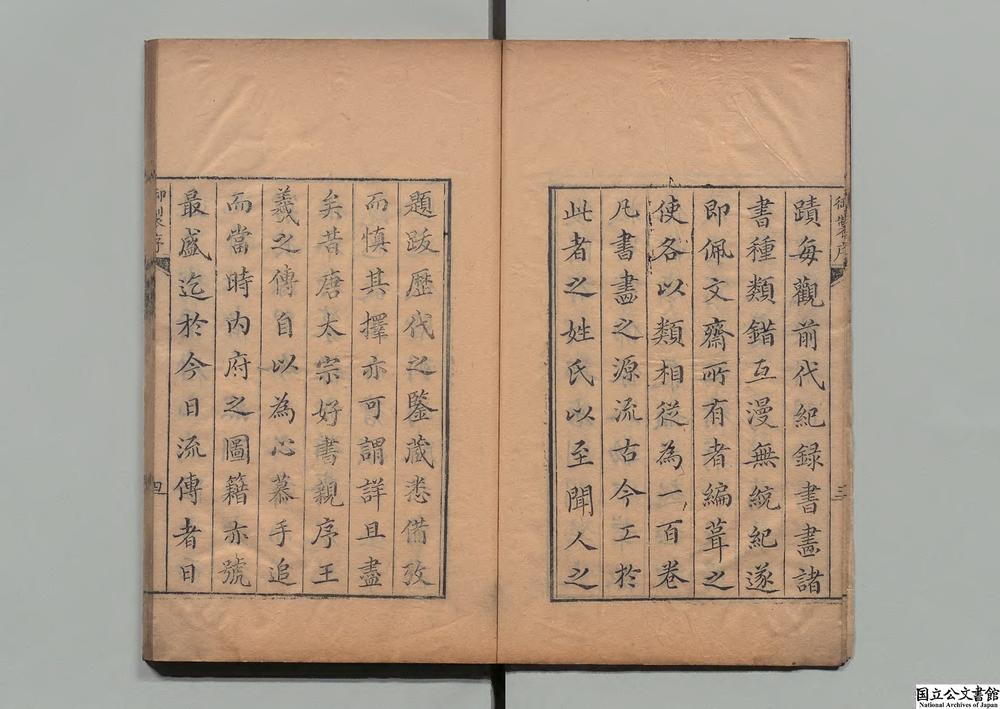 御製序
三
蹟每觀前代紀録書畫諸
書種類錯互漫無統紀遂
即佩文齋所有者編葺之
使各以類相從為一百卷
凡書畫之源流古今工於
此者之姓氏以至聞人之
題跋歷代之鑒藏悉備攷
而慎其擇亦可謂詳且盡
矣昔唐太宗好書親序王
羲之傳自以為心慕手追
而當時内府之圖籍亦號
最盛迄於今日流傳者日
御製序
四
国立公文書館
National Archives of Japan